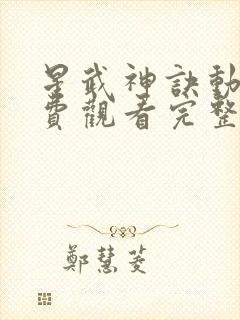 星武神訣動
費觀看完整
鄭慧菱